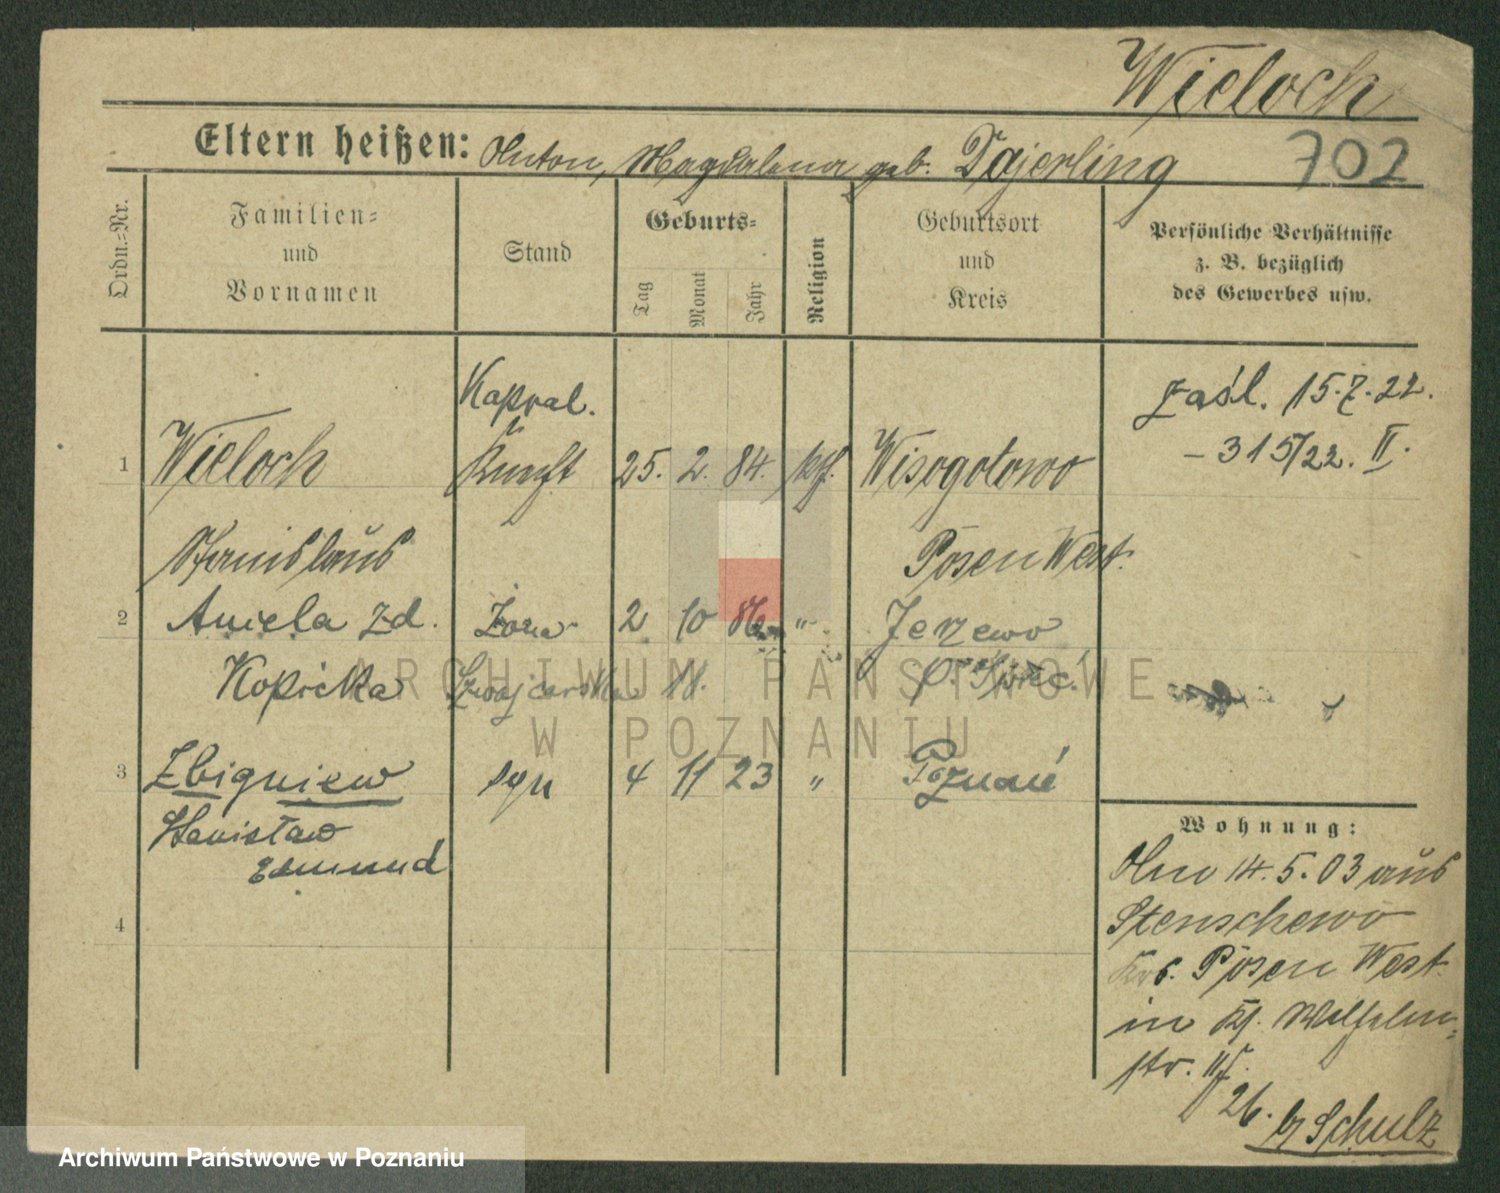 Wieloch
Eltern heißen: Anton, Magdalena geb. Tajerling
702
Ordn.-Nr.
Familien- und Vornamen
Stand
Geburts-
Tag
Monat
Jahr
Religion
Geburtsort und Kreis
Persönliche Verhältnisse
z. B. bezüglich
des Gewerbes usw.
Kapral.
zaśl. 15.7.22.
– 315/22. II.
1 Wieloch 25. 2. 84. kth. Wisogotowo
Stanislaus Posen West.
2 Aniela zd. żona 2 10 86 " Jerzewo
Kopicka Szwajcarska 11.
3 Zbigniew syn 4 11 23 " Poznań
Stanisław
Edmund
4
Wohnung:
Am 14.5.03 aus
Stenschewo
Krs. Posen West
in Kl. Wilhelm-
str. 11
26. b/ Schulz
ARCHIWUM PAŃSTWOWE
W POZNANIU
Archiwum Państwowe w Poznaniu